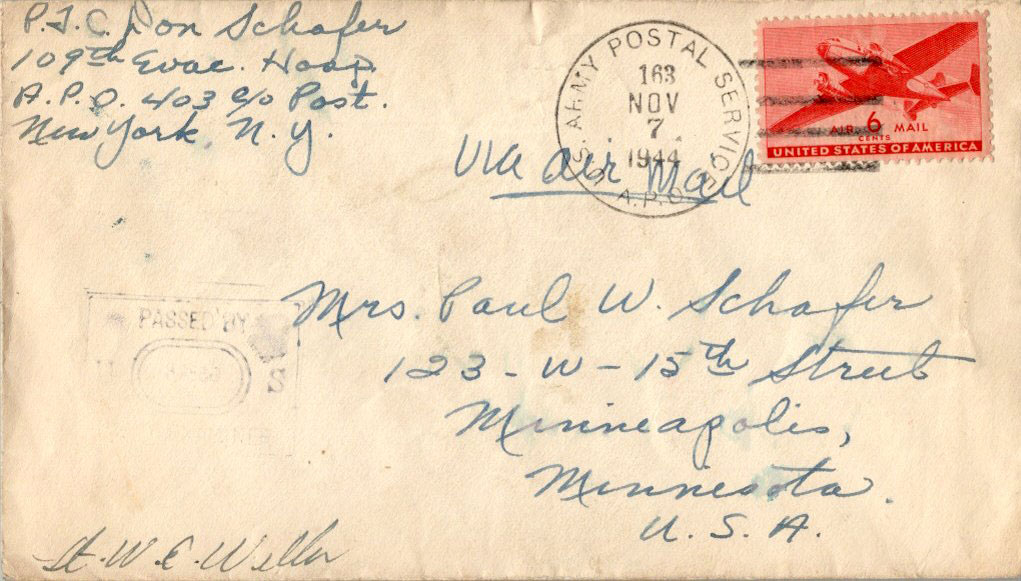 P.F.C. Don Schafer
109th Evac. Hosp.
A.P.O. 403 c/o Post.
New York, N.Y.
U.S. ARMY POSTAL SERVICE
163
NOV
7
1944
A.P.O.
AIR 6 MAIL
CENTS
UNITED STATES OF AMERICA
Via Air Mail
Mrs. Paul W. Schafer
123 - W - 15th Street
Minneapolis,
Minnesota.
U.S.A.
PASSED BY
S
Lt. W. E. Weller